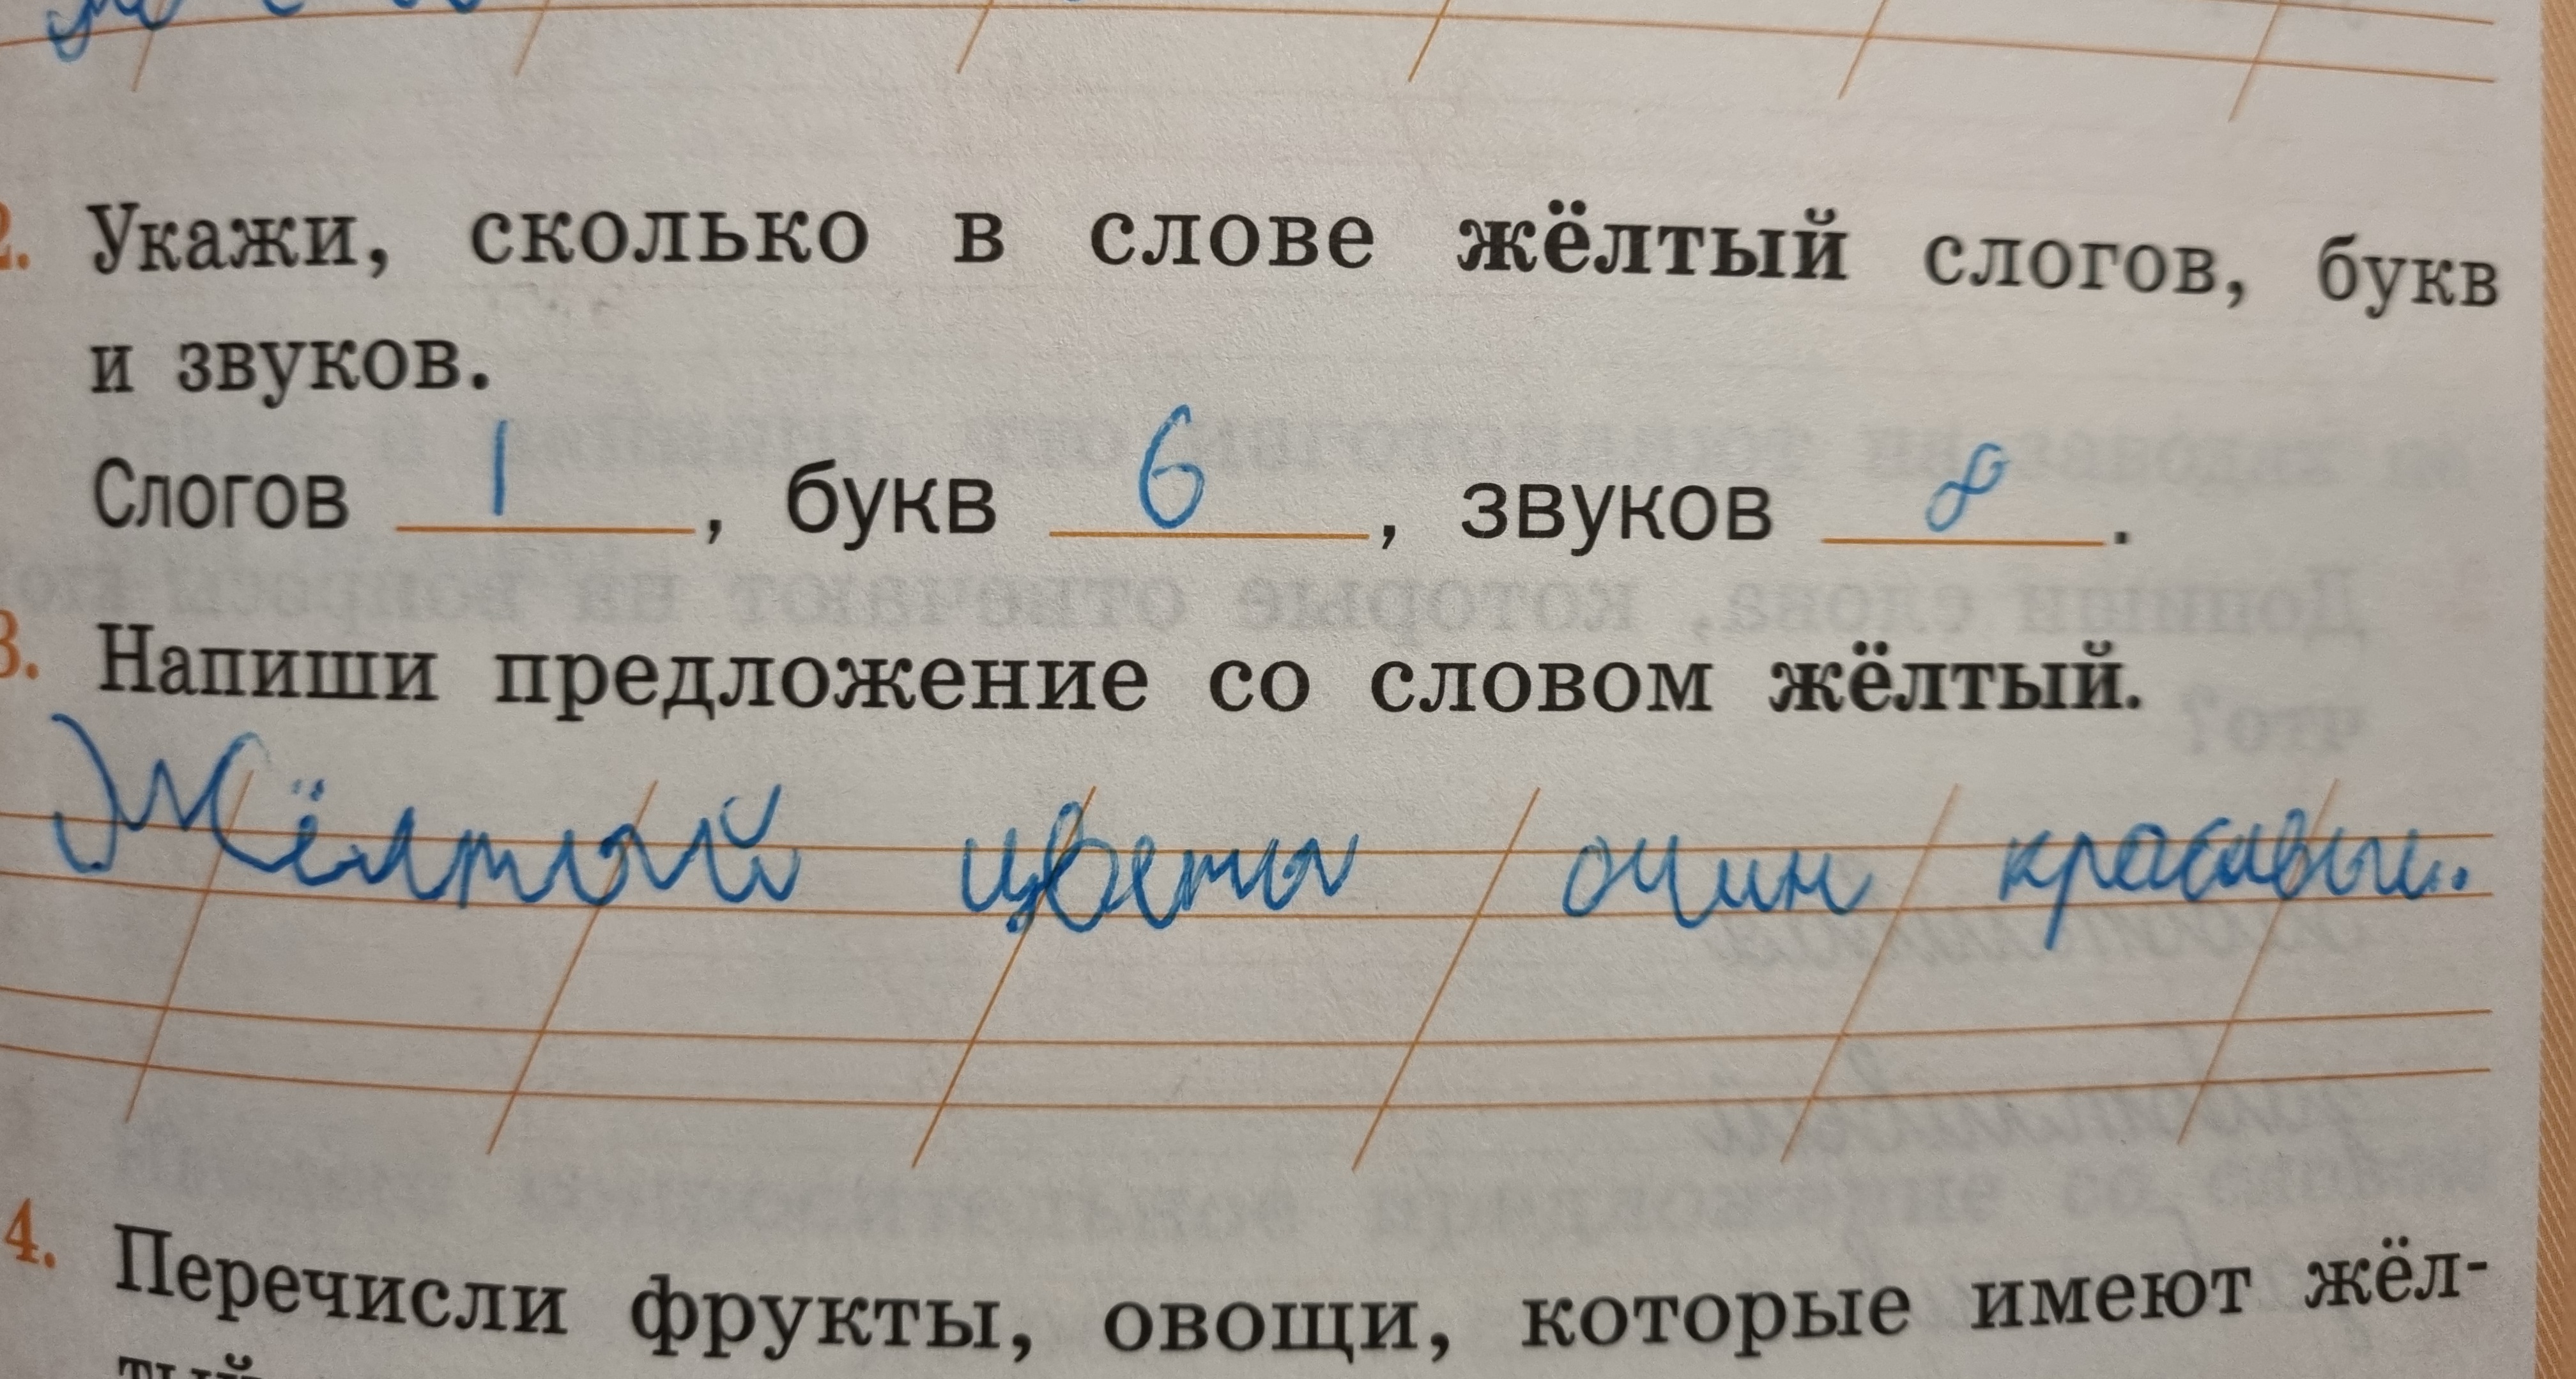 2. Укажи, сколько в слове жёлтый слогов, букв
и звуков.
Слогов 1, букв 6, звуков 8.
3. Напиши предложение со словом жёлтый.
Жёлтый цветы очин красивыи.
4. Перечисли фрукты, овощи, которые имеют жёл-
тый